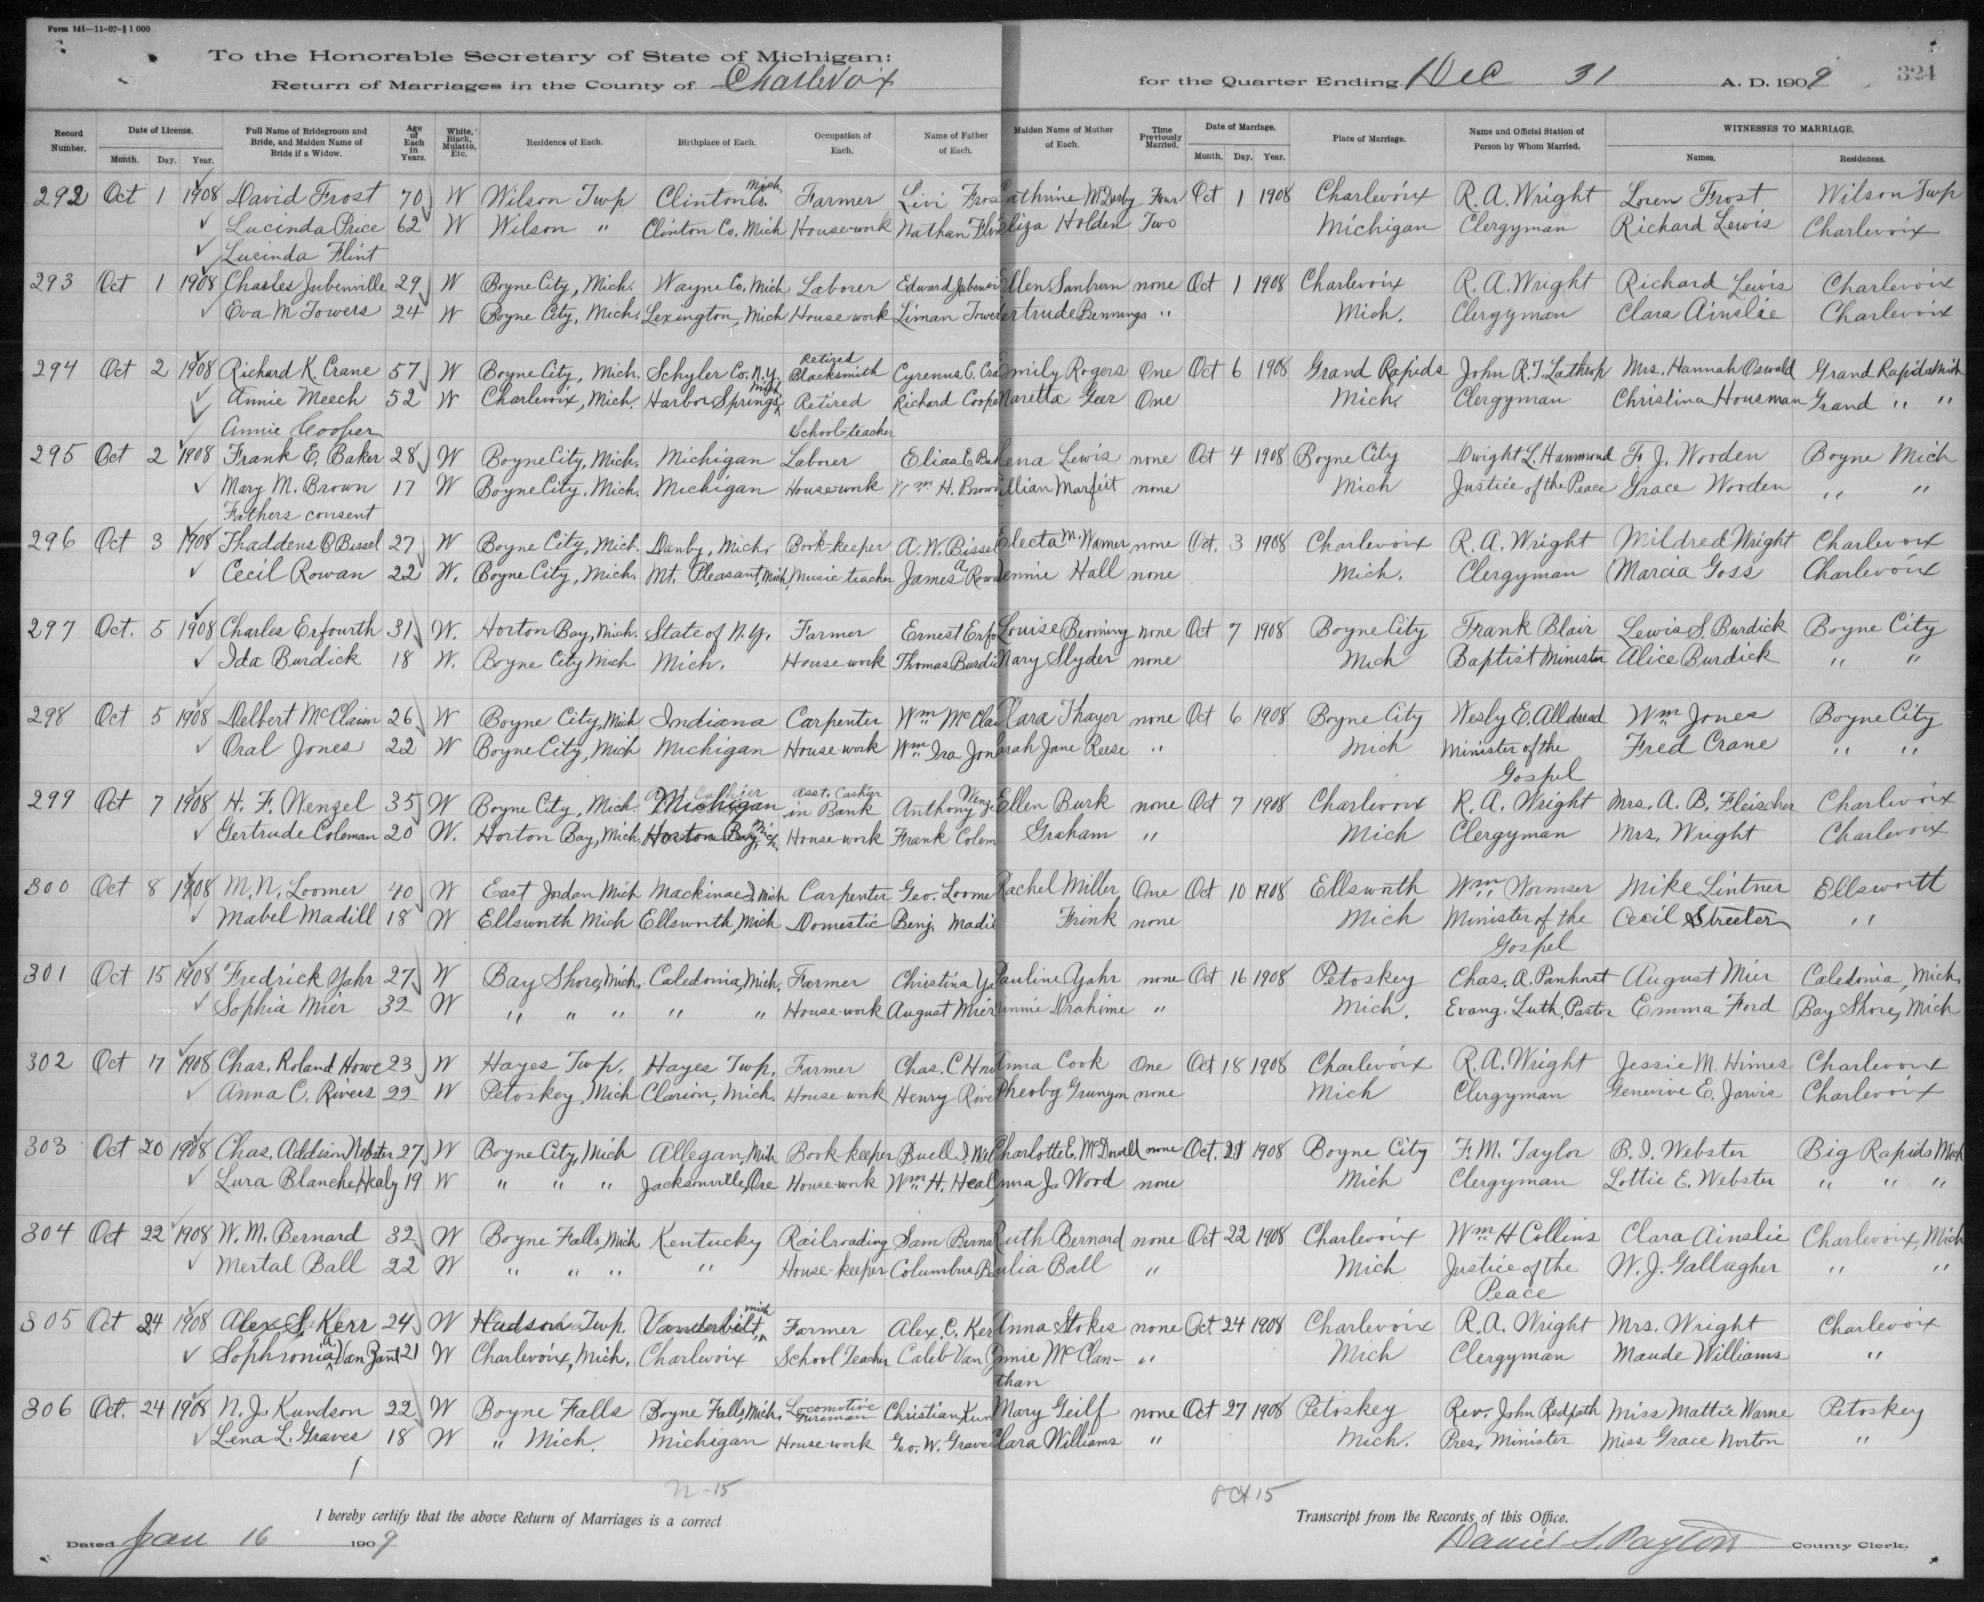 Form 141—11-07-§ 1 000
To the Honorable Secretary of State of Michigan:
Return of Marriages in the County of Charlevoix for the Quarter Ending Dec 31 A. D. 1909 324
Record Number. Date of License. Full Name of Bridegroom and Bride, and Maiden Name of Bride if a Widow. Age of Each in Years. White, Black, Mulatto, Etc. Residence of Each. Birthplace of Each. Occupation of Each. Name of Father of Each. Maiden Name of Mother of Each. Time Previously Married. Date of Marriage. Place of Marriage. Name and Official Station of Person by Whom Married. WITNESSES TO MARRIAGE.
Month. Day. Year. Month. Day. Year. Names. Residences.
292 Oct 1 1908 David Frost 70 W Wilson Twp Clinton Co. Mich. Farmer Livi Fros athrine McDerby Four Oct 1 1908 Charlevoix R. A. Wright Loren Frost Wilson Twp
Lucinda Price 62 W Wilson " Clinton Co. Mich Housework Nathan Flin liza Holden Two Michigan Clergyman Richard Lewis Charlevoix
Lucinda Flint
293 Oct 1 1908 Charles Jubenville 29 W Boyne City, Mich. Wayne Co. Mich Laborer Edward Jubenvi Ellen Sanburn none Oct 1 1908 Charlevoix R. A. Wright Richard Lewis Charlevoix
Eva M Towers 24 W Boyne City, Mich. Lexington, Mich House-work Liman Tower ertrude Bennings " Mich. Clergyman Clara Ainslie Charlevoix
294 Oct 2 1908 Richard K. Crane 57 W Boyne City, Mich. Schyler Co. N.Y. Retired Blacksmith Cyrenus C. Cra Emily Rogers One Oct 6 1908 Grand Rapids John R. T. Lathrop Mrs. Hannah Oswald Grand Rapids Mich
Annie Meech 52 W Charlevoix, Mich. Harbor Springs, Mich Retired Richard Coope Maretta Geer One Mich. Clergyman Christina Housman Grand " "
Annie Cooper School-teacher
295 Oct 2 1908 Frank E. Baker 28 W Boyne City, Mich. Michigan Laborer Elias E. Bak ena Lewis none Oct 4 1908 Boyne City Dwight L. Hammond F. J. Wooden Boyne Mich
Mary M. Brown 17 W Boyne City, Mich. Michigan Housework Wm H. Brow illian Marfeit none Mich Justice of the Peace Grace Wooden " "
Fathers consent
296 Oct 3 1908 Thaddens B Bissel 27 W Boyne City, Mich. Danby, Mich. Book-keeper A. W. Bissel Electa M. Warner none Oct. 3 1908 Charlevoix R. A. Wright Mildred Wright Charlevoix
Cecil Rowan 22 W. Boyne City, Mich. Mt. Pleasant, Mich. Music teacher James A Row ennie Hall none Mich. Clergyman Marcia Goss Charlevoix
297 Oct. 5 1908 Charles Erfourth 31 W. Horton Bay, Mich. State of N.Y. Farmer Ernest Erfo Louise Berning none Oct 7 1908 Boyne City Frank Blair Lewis S. Burdick Boyne City
Ida Burdick 18 W. Boyne City Mich Mich. House-work Thomas Burdi Mary Slyder none Mich Baptist Minister Alice Burdick " "
298 Oct 5 1908 Delbert McClaim 26 W Boyne City, Mich Indiana Carpenter Wm McClai Clara Thayer none Oct 6 1908 Boyne City Wesly E. Alldread Wm Jones Boyne City
Oral Jones 22 W Boyne City, Mich Michigan House-work Wm Ira Jon arah Jane Reese " Mich Minister of the Fred Crane " "
Gospel
299 Oct 7 1908 H. F. Wenzel 35 W Boyne City, Mich. Michigan asst. Cashier in Bank Anthony Wenz Ellen Burk none Oct 7 1908 Charlevoix R. A. Wright Mrs. A. B. Fleischer Charlevoix
Gertrude Coleman 20 W. Horton Bay, Mich. Horton Bay, Mich. House-work Frank Colem Graham " Mich Clergyman Mrs. Wright Charlevoix
300 Oct 8 1908 M. N. Loomer 40 W East Jordan Mich Mackinac I. Mich Carpenter Geo. Loome Rachel Miller One Oct 10 1908 Ellsworth Wm Wormser Mike Lintner Ellsworth
Mabel Madill 18 W Ellsworth Mich Ellsworth, Mich Domestic Benj. Madil Frink none Mich Minister of the Cecil Streeter "
Gospel
301 Oct 15 1908 Fredrick Yahr 27 W Bay Shore, Mich. Caledonia, Mich. Farmer Christina Ya Pauline Yahr none Oct 16 1908 Petoskey Chas. A. Panhorst August Mier Caledonia, Mich.
Sophia Mier 32 W " " " " " House-work August Mier Minnie Drahime " Mich. Evang. Luth. Pastor Emma Ford Bay Shore, Mich
302 Oct 17 1908 Chas. Roland Howe 23 W Hayes Twp. Hayes Twp. Farmer Chas. C How Anna Cook One Oct 18 1908 Charlevoix R. A. Wright Jessie M. Himes Charlevoix
Anna C. Rivers 22 W Petoskey, Mich Clarion, Mich. House-work Henry Rive Pheoby Grunyon none Mich Clergyman Genevive E. Jarvis Charlevoix
303 Oct 20 1908 Chas. Addison Webster 27 W Boyne City, Mich Allegan, Mich Book keeper Buell I. Web Charlotte E. McDowell none Oct. 21 1908 Boyne City F. M. Taylor B. I. Webster Big Rapids Mich
Lura Blanche Healy 19 W " " " Jacksonville, Ore House-work Wm H. Heal Anna J. Wood none Mich Clergyman Lottie E. Webster " " "
304 Oct 22 1908 W. M. Bernard 32 W Boyne Falls, Mich Kentucky Railroading Sam Berna Ruth Bernard none Oct 22 1908 Charlevoix Wm H Collins Clara Ainslie Charlevoix, Mich
Mertal Ball 22 W " " " " House-keeper Columbus B ulia Ball " Mich Justice of the W. J. Gallagher " "
Peace
305 Oct 24 1908 Alex S. Kerr 24 W Hudson Twp. Vanderbilt, Mich Farmer Alex. C. Ker Anna Stokes none Oct 24 1908 Charlevoix R. A. Wright Mrs. Wright Charlevoix
Sophronia A Van Zant 21 W Charlevoix, Mich. Charlevoix School Teacher Caleb Van Z nnie McClan- " Mich Clergyman Maude Williams "
than
306 Oct. 24 1908 N. J. Kundson 22 W Boyne Falls Boyne Falls, Mich. Locomotive Fireman Christian Kun Mary Geilf none Oct 27 1908 Petoskey Rev. John Redpath Miss Mattie Warne Petoskey
Lena L. Graves 18 W " Mich. Michigan House-work Geo. W. Grave Clara Williams " Mich. Pres. Minister Miss Grace Norton "
n-15 Oct 15
I hereby certify that the above Return of Marriages is a correct Transcript from the Records of this Office.
Dated Jan 16 1909 Daniel S. Payton County Clerk.